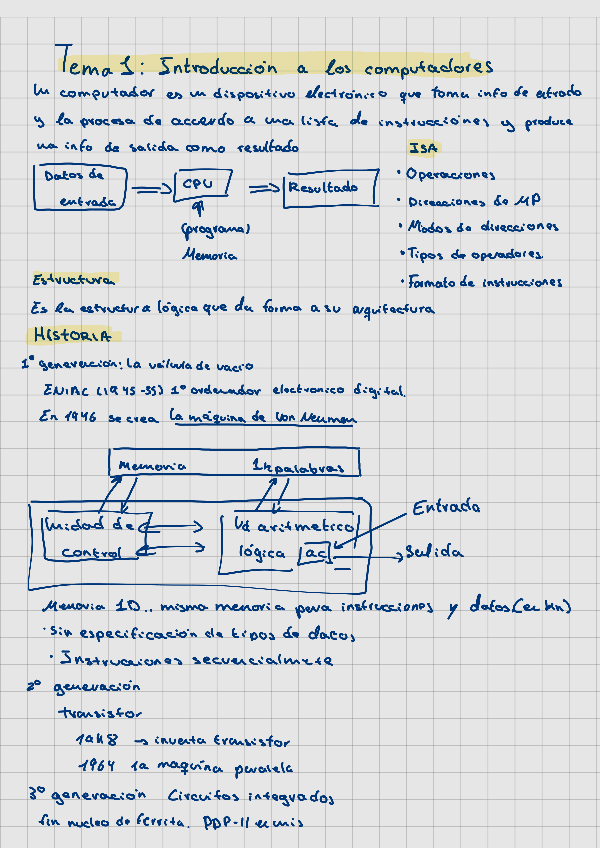 Tema 1: Introducción a los computadores
Un computador es un dispositivo electrónico que toma info de entrada
y la procesa de acuerdo a una lista de instrucciones y produce
una info de salida como resultado
ISA
Datos de
entrada
CPU
Resultado
(programa)
Memoria
• Operaciones
• Direcciones de MP
• Modos de direcciones
• Tipos de operadores
• Formato de instrucciones
Estructura
Es la estructura lógica que da forma a su arquitectura
HISTORIA
1º generación: La válvula de vacío
ENIAC (1945-55) 1º ordenador electronico digital.
En 1946 se crea la máquina de Von Neuman
Memoria 1k palabras
Unidad de
control
Ud aritmetico
lógica ac
Entrada
Salida
Memoria 1D.. misma memoria para instrucciones y datos
• Sin especificación de tipos de datos
• Instrucciones secuencialmente
2º generación
transistor
1948 → inventa transistor
1964 la maquina paralela
3º generación Circuitos integrados
fin nucleo de ferrita. PDP-11